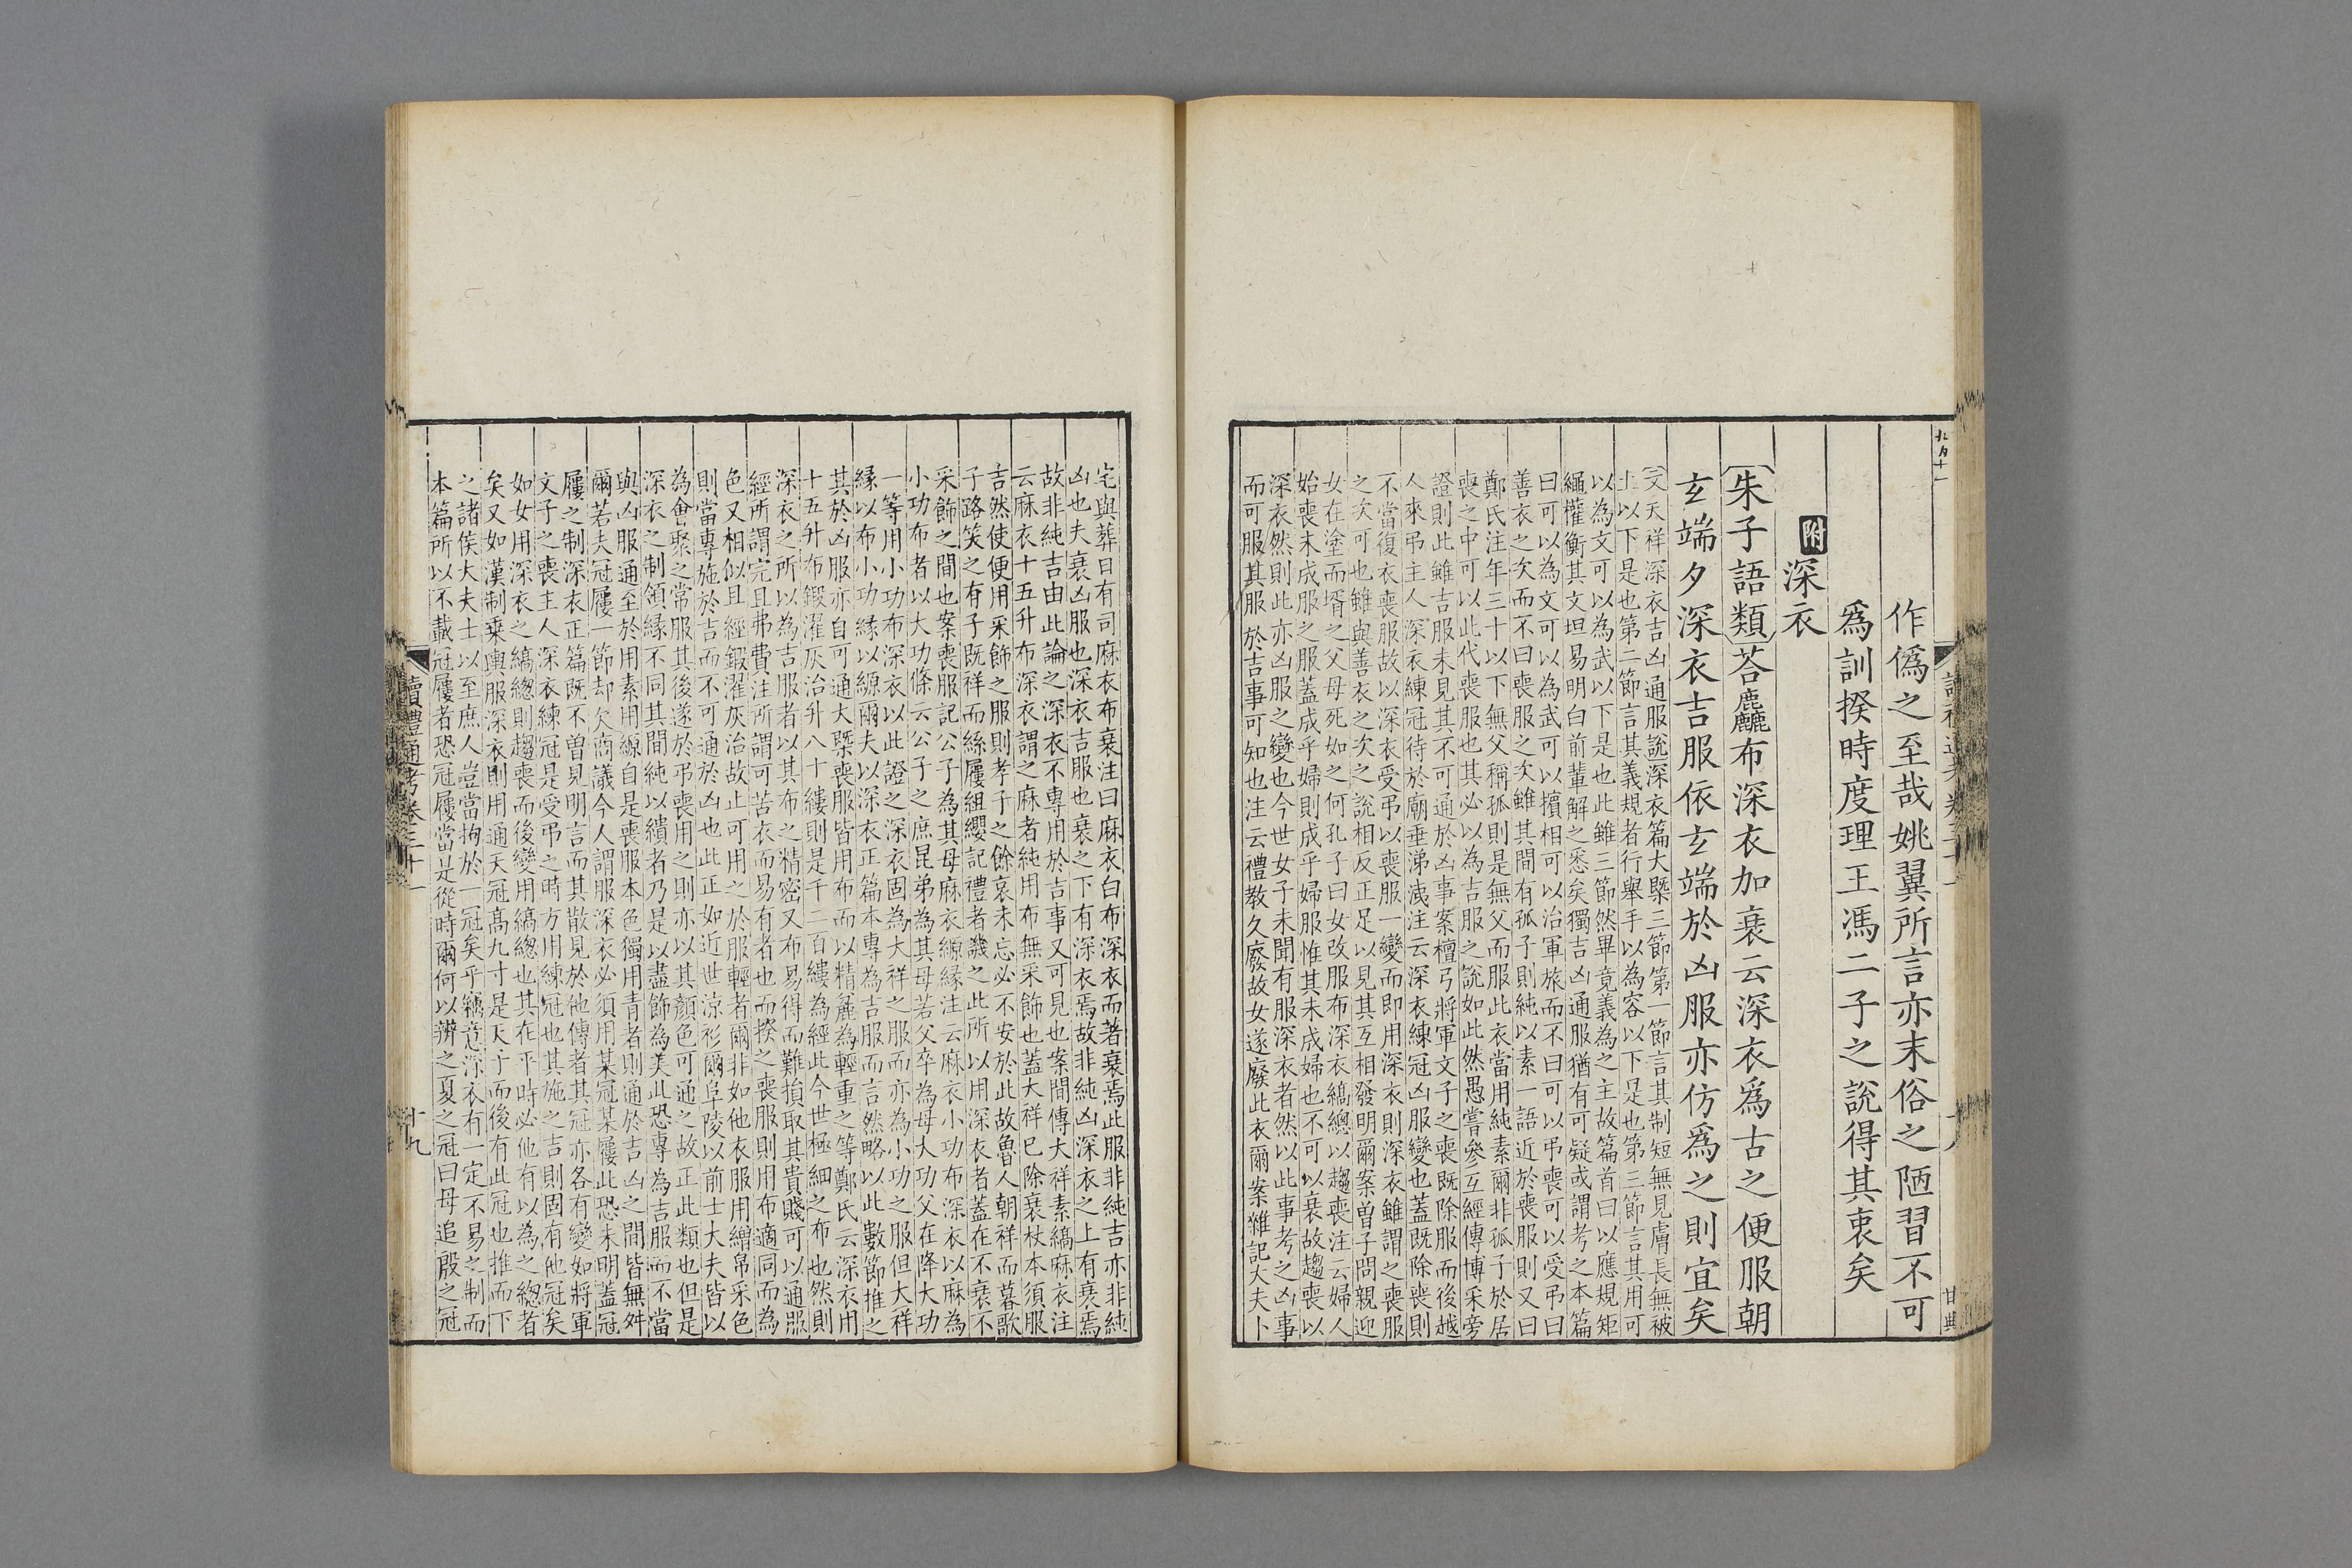 作僞之至哉姚翼所言亦末俗之陋習不可
爲訓揆時度理王馮二子之說得其衷矣
附深衣
朱子語類荅麤布深衣加衰云深衣爲古之便服朝
玄端夕深衣吉服依玄端於凶服亦仿爲之則宜矣
文天祥深衣吉凶通服說深衣篇大槩三節第一節言其制短無見膚長無被
土以下是也第二節言其義規者行舉手以為容以下是也第三節言其用可
以為文可以為武以下是也此雖三節然畢竟義為之主故篇首曰以應規矩
繩權衡其文坦易明白前輩解之悉矣獨吉凶通服猶有可疑或謂考之本篇
曰可以為文可以為武可以擯相可以治軍旅而不曰可以弔喪可以受弔曰
善衣之次而不曰喪服之次雖其間有孤子則純以素一語近於喪服則又曰
鄭氏注年三十以下無父稱孤則是無父而服此衣當用純素爾非孤子於居
喪之中可以此代喪服也其必以為吉服之說如此然愚嘗參互經傳博采旁
證則此雖吉服未見其不可通於凶事案檀弓將軍文子之喪既除服而後越
人來弔主人深衣練冠待於廟垂涕洟注云深衣練冠凶服變也蓋既除喪則
不當復衣喪服故以深衣受弔以喪服一變而即用深衣則深衣雖謂之喪服
之次可也雖與善衣之次之說相反正足以見其互相發明爾案曽子問親迎
女在塗而壻之父母死如之何孔子曰女改服布深衣縞總以趨喪注云婦人
始喪未成服之服蓋成乎婦則成乎婦服惟其未成婦也不可以衰故趨喪以
深衣然則此亦凶服之變也今世女子未聞有服深衣者然以此事考之凶事
而可服其服於吉事可知也注云禮教久廢故女遂廢此衣爾案雜記大夫卜
宅與葬日有司麻衣布衰注曰麻衣白布深衣而著衰焉此服非純吉亦非純
凶也夫衰凶服也深衣吉服也衰之下有深衣焉故非純凶深衣之上有衰焉
故非純吉由此論之深衣不專用於吉事又可見也案間傳大祥素縞麻衣注
云麻衣十五升布深衣謂之麻者純用布無采飾也蓋大祥已除衰杖本須服
吉然使便用采飾之服則孝子之餘哀未忘必不安於此故魯人朝祥而暮歌
子路笑之有子既祥而絲屨組纓記禮者譏之此所以用深衣者蓋在不衰不
采飾之間也案喪服記公子為其母麻衣縓緣注云麻衣小功布深衣以麻為
小功布者以大功條云公子之庶昆弟為其母若父卒為母大功父在降大功
一等用小功布深衣以此證之深衣固為大祥之服而亦為小功之服但大祥
緣以布小功緣以縓爾夫以深衣正篇本專為吉服而言然略以此數節推之
其於凶服亦自可通大槩喪服皆用布而以精麤為輕重之等鄭氏云深衣用
十五升布鍛濯灰治升八十縷則是千二百縷為經此今世極細之布也然則
深衣之所以為吉服者以其布之精密又布易得而難損取其貴賤可以通服
經所謂完且弗費注所謂可苦衣而易有者也而揆之喪服則用布適同而為
色又相似且經鍛濯灰治故止可用之於服輕者爾非如他衣服用繒帛采色
則當專施於吉而不可通於凶也此正如近世涼衫爾阜陵以前士大夫皆以
為會聚之常服其後遂於弔喪用之則亦以其顏色可通之故正此類也但是
深衣之制領緣不同其間純以繢者乃是以盡飾為美此恐專為吉服而不當
與凶服通至於用素用縓自是喪服本色獨用青者則通於吉凶之間皆無舛
爾若夫冠屨一節却欠商議今人謂服深衣必須用某冠某屨此恐未明蓋冠
屨之制深衣正篇既不曽見明言而其散見於他傳者其冠亦各有變如將軍
文子之喪主人深衣練冠是受弔之時方用練冠也其施之吉則固有他冠矣
如女用深衣之縞總則趨喪而後變用縞總也其在平時必他有以為之總者
矣又如漢制乘輿服深衣則用通天冠髙九寸是天子而後有此冠也推而下
之諸侯大夫士以至庶人豈當拘於一冠矣乎竊意深衣有一定不易之制而
本篇所以不載冠屨者恐冠屨當是從時爾何以辨之夏之冠曰毋追殷之冠
讀禮通考卷三十一
十九